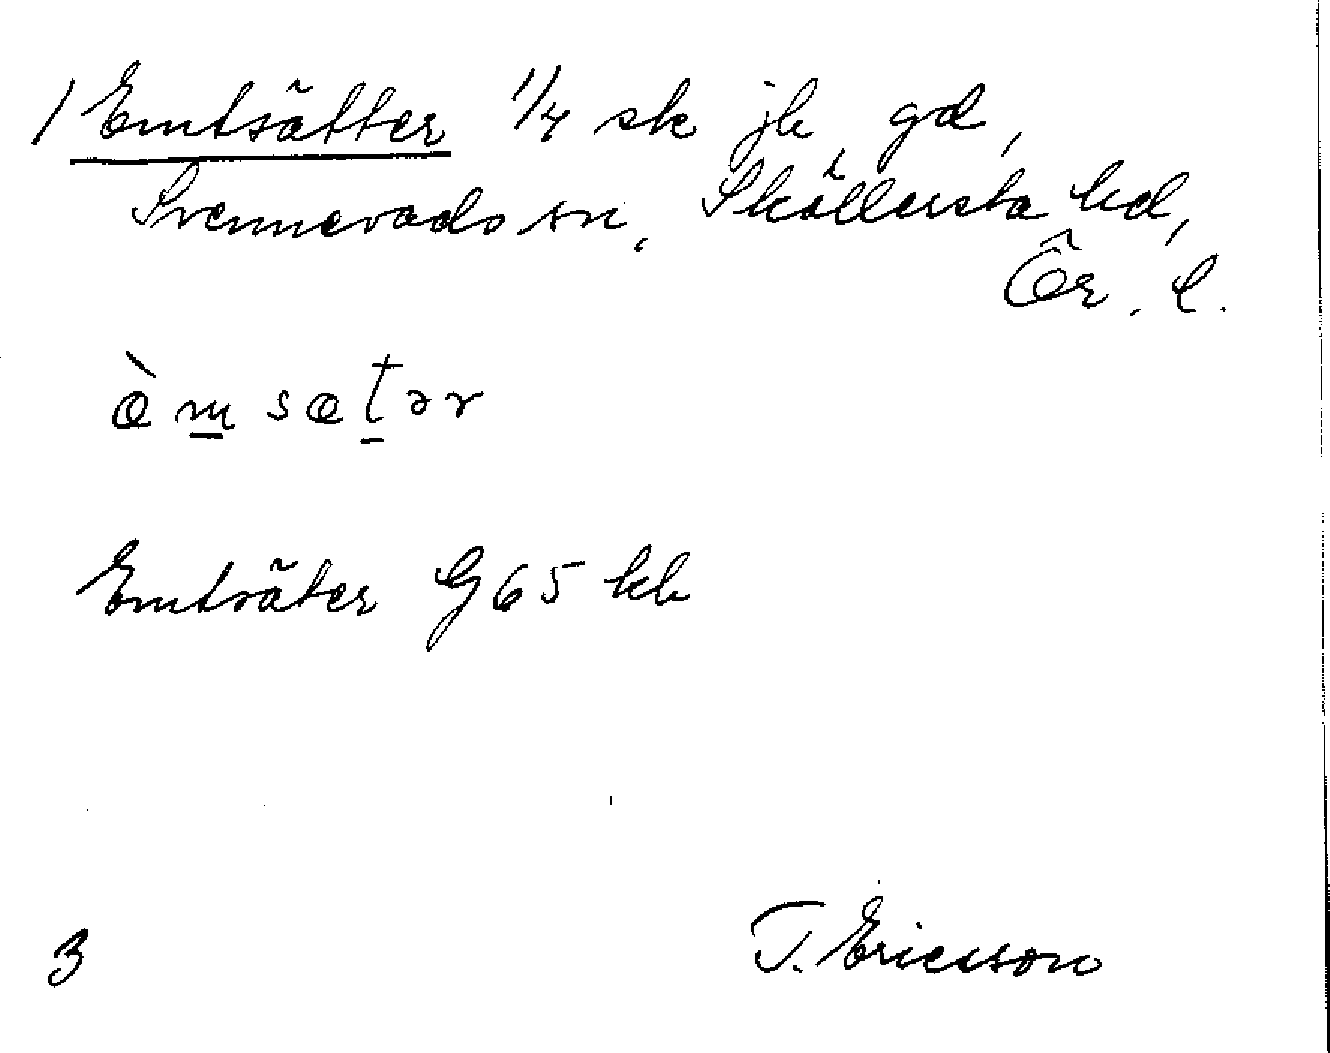 1 Emtsätter 1/4 sk jb gd,
Svennevads sn, Sköllersta hd,
Ör. l.
æ̀m̲sæt̲ər
Emtsäter G 65 kb
3 T. Ericsson